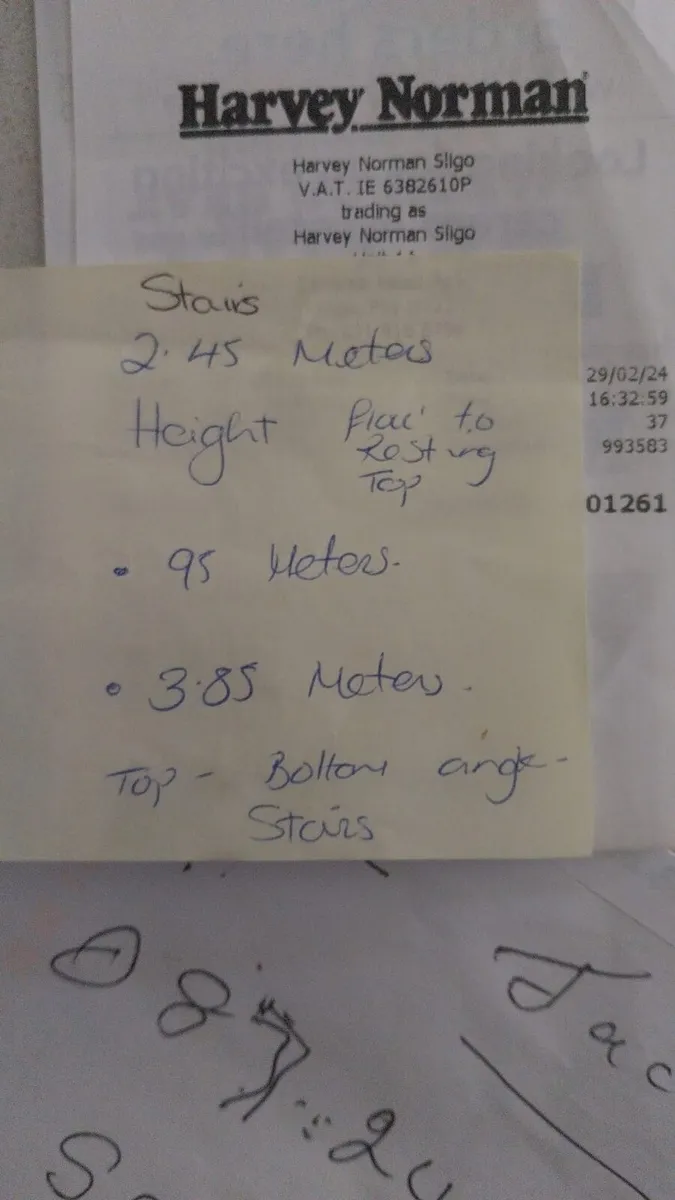 Harvey Norman
Harvey Norman Sligo
V.A.T. IE 6382610P
trading as
Harvey Norman Sligo
29/02/24
16:32:59
37
993583
01261
Stairs
2.45 Meters
Height to
Resting
Top
• 95 Meters.
• 3.85 Meters.
Top - Bottom angle -
Stairs